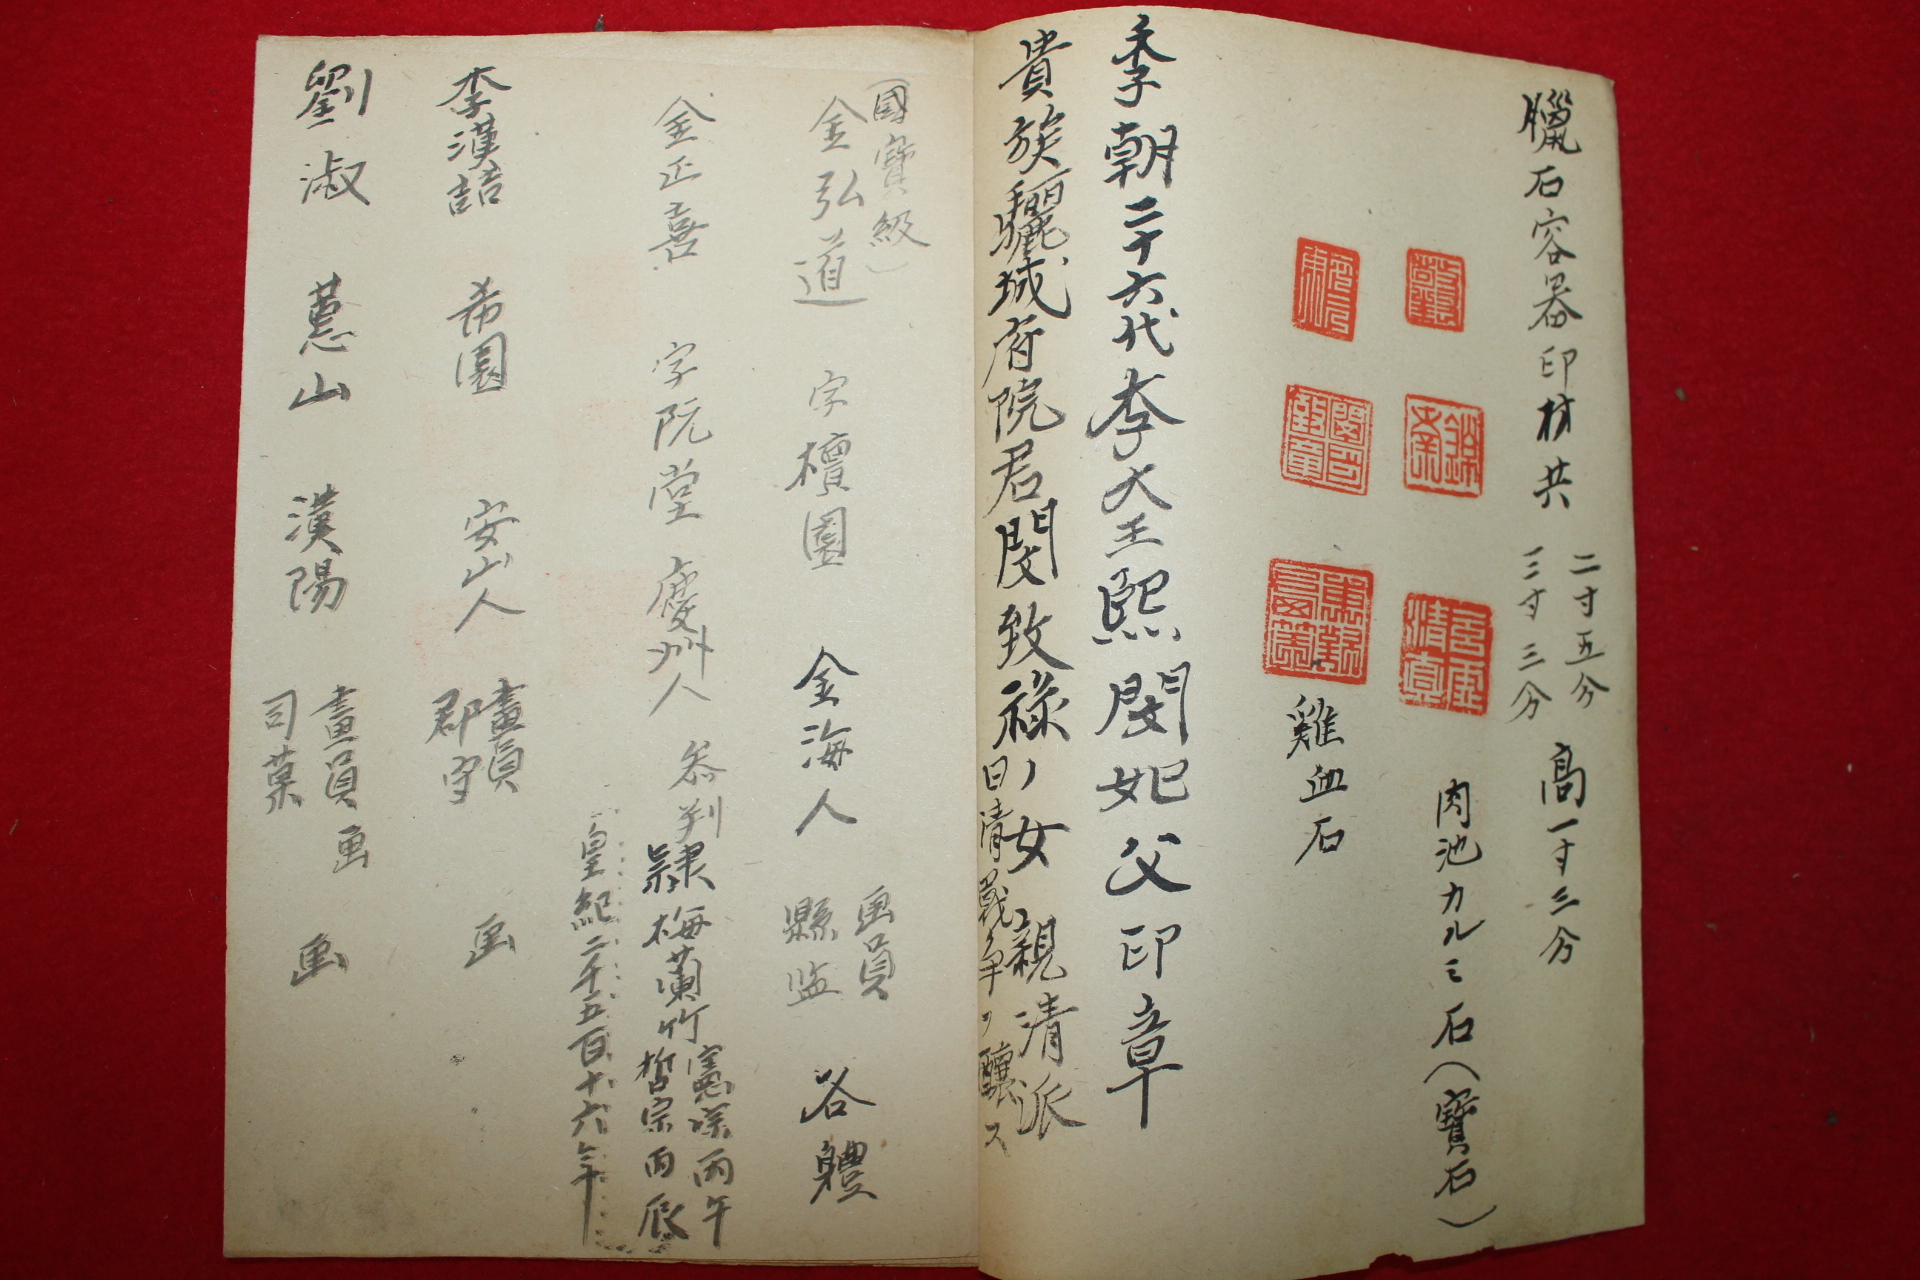 臘石容器印材共
二寸五分
三寸三分
高一寸三分
肉池カルミ石(寶石)
雞血石
季朝二十六代李大王熙閔妃父印章
貴族驪城府院君閔致祿ノ女親清派
日清戰争ノ釀ス
(國寶級)
金弘道 字檀園 金海人
画員
縣监
各軆
金正喜 字阮堂 慶州人 叅判
隷梅蘭竹
憲宗丙午
哲宗丙辰
皇紀二千五百十六年
李漢喆 希園 安山人
畫員
郡守
画
劉淑 蕙山 漢陽
畫員画
司菓
画